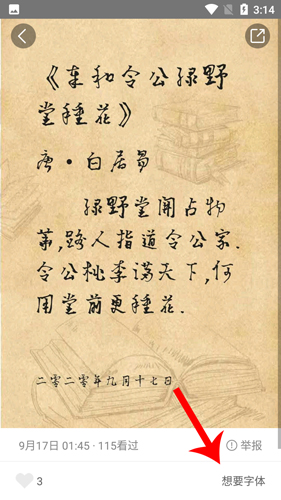 3:14
《奉和令公绿野
堂種花》
唐·白居易
绿野堂開占物
華,路人指道令公家.
令公桃李滿天下,何
用堂前更種花.
二零二零年九月十七日
9月17日 01:45 · 115看过
举报
3
想要字体